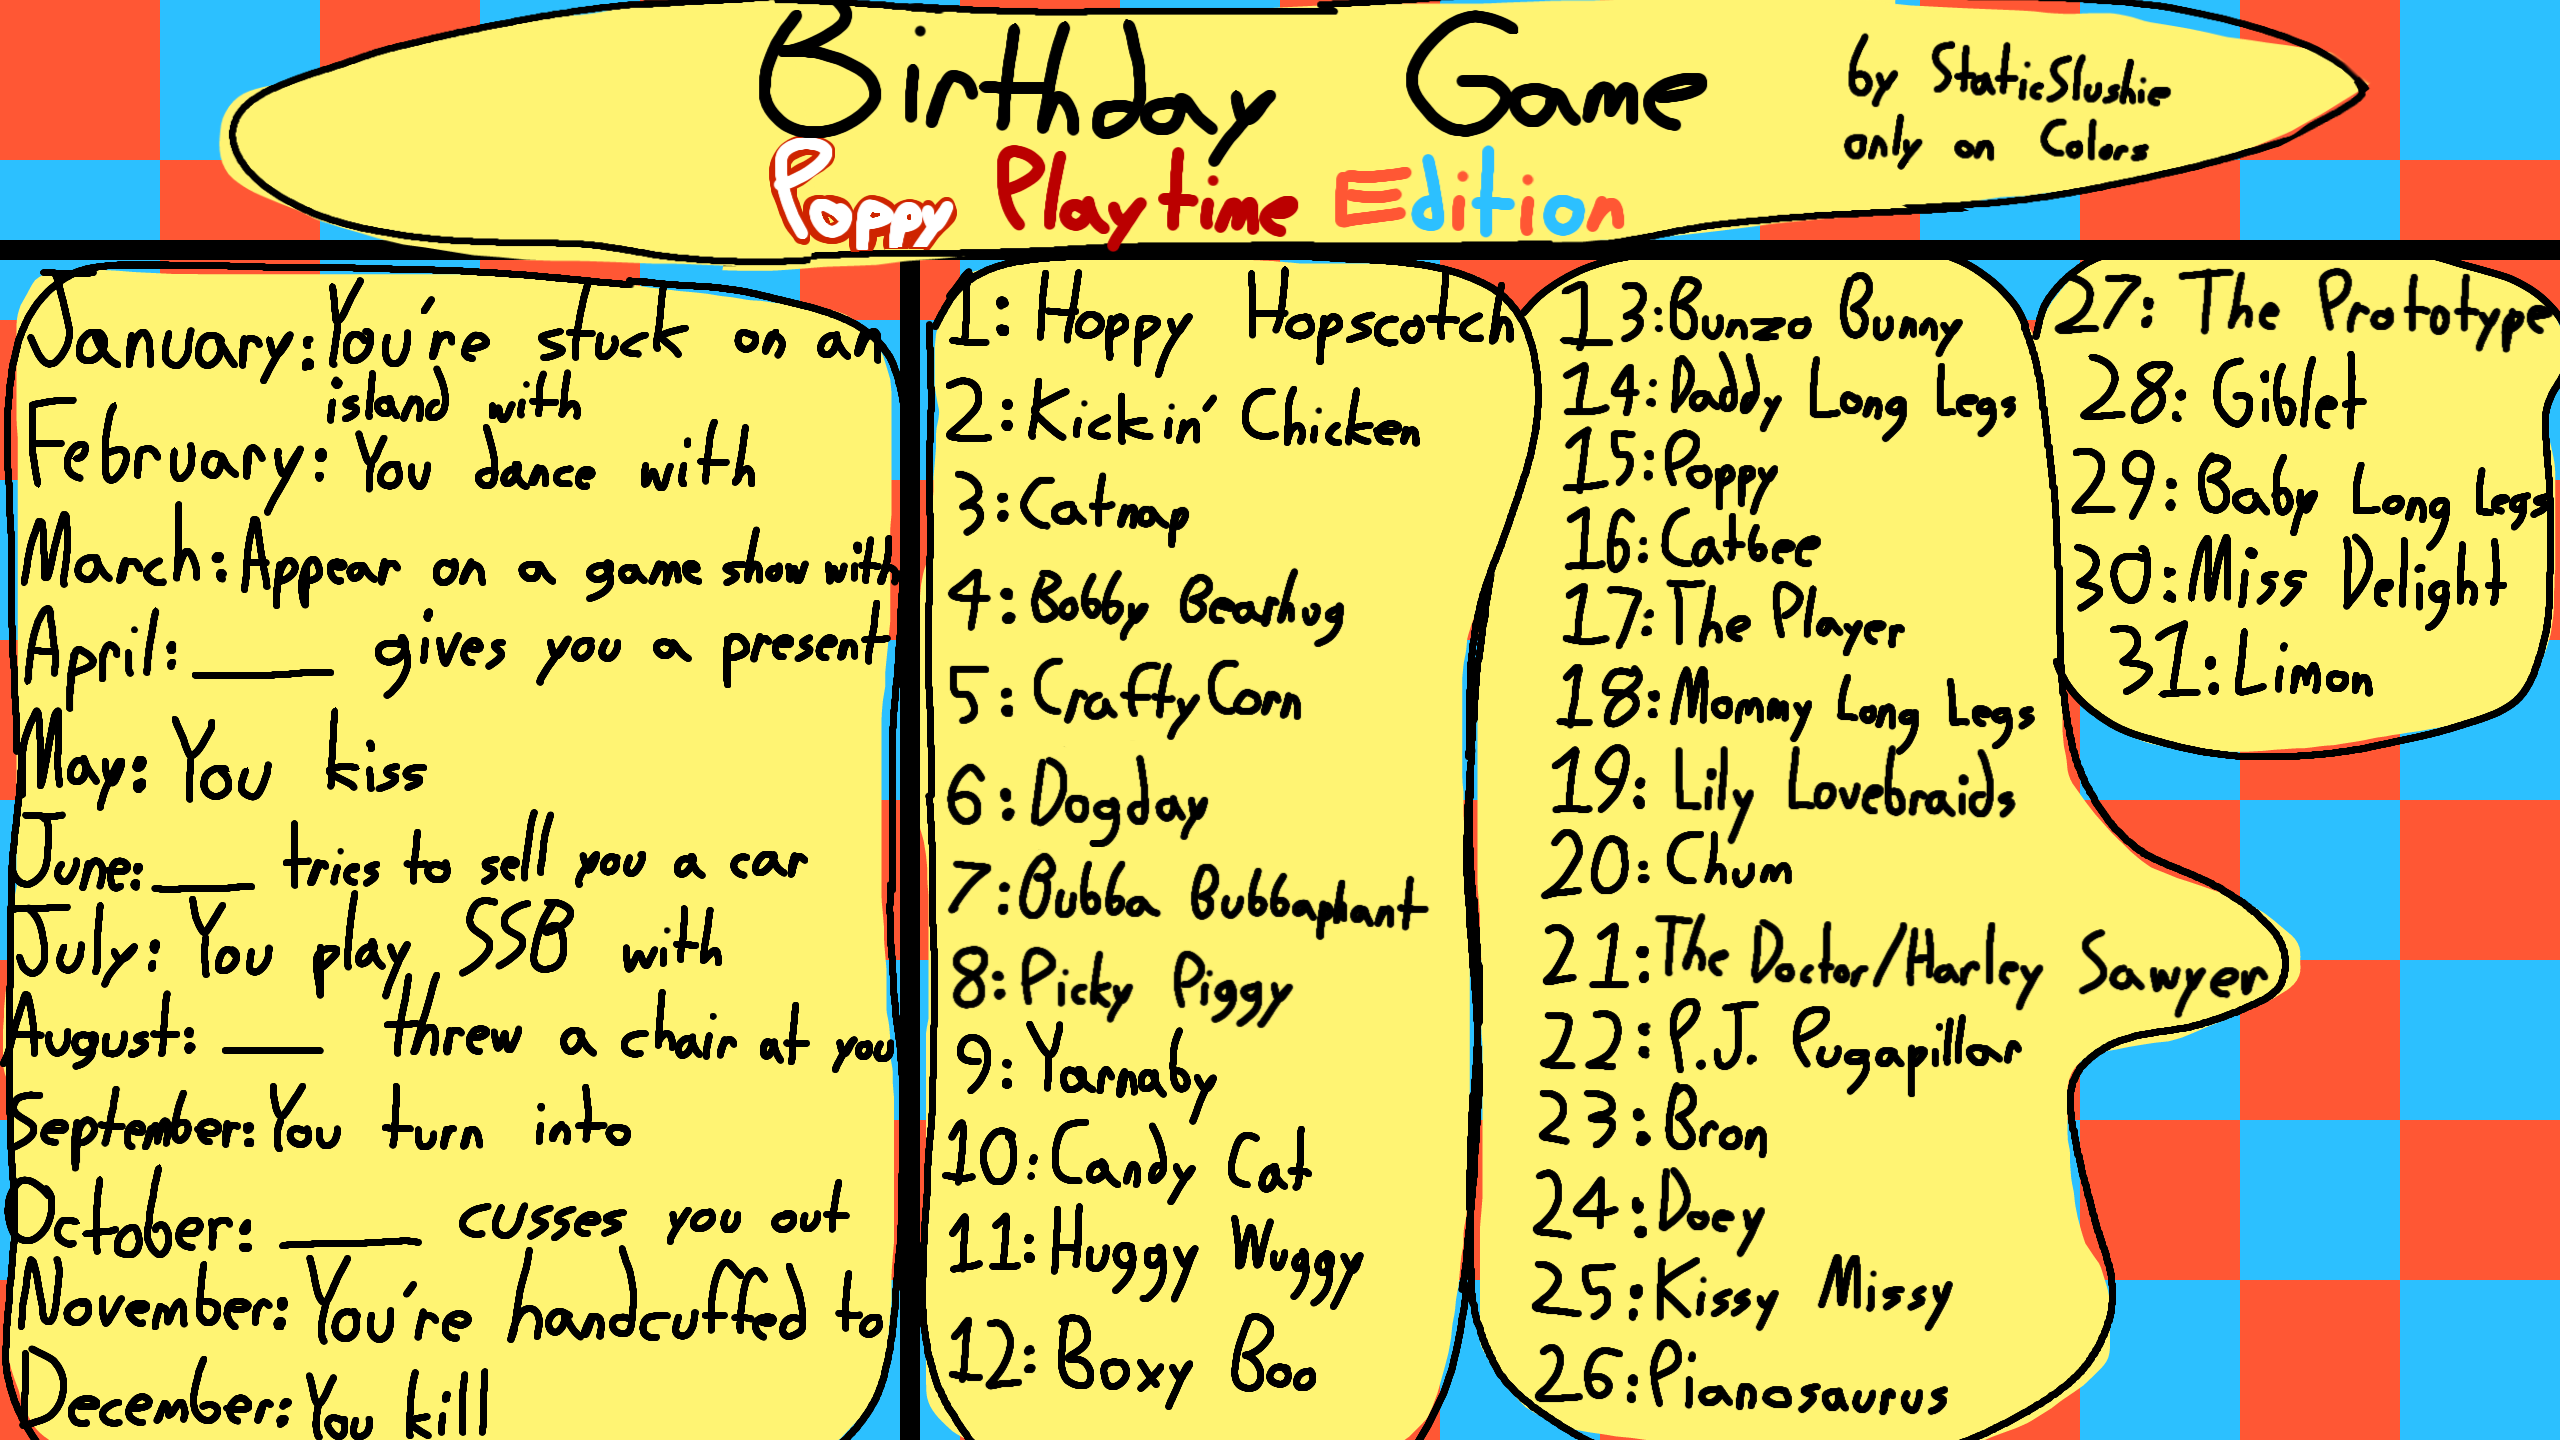 Birthday Game
by StaticSlushie
only on Colors
Poppy Playtime Edition
January: You're stuck on an
island with
February: You dance with
March: Appear on a game show with
April: ____ gives you a present
May: You kiss
June: ___ tries to sell you a car
July: You play SSB with
August: ___ threw a chair at you
September: You turn into
October: ____ cusses you out
November: You're handcuffed to
December: You kill
1: Hoppy Hopscotch
2: Kickin' Chicken
3: Catnap
4: Bobby Bearhug
5: CraftyCorn
6: Dogday
7: Bubba Bubbaphant
8: Picky Piggy
9: Yarnaby
10: Candy Cat
11: Huggy Wuggy
12: Boxy Boo
13: Bunzo Bunny
14: Daddy Long Legs
15: Poppy
16: Catbee
17: The Player
18: Mommy Long Legs
19: Lily Lovebraids
20: Chum
21: The Doctor/Harley Sawyer
22: P.J. Pugapillar
23: Bron
24: Doey
25: Kissy Missy
26: Pianosaurus
27: The Prototype
28: Giblet
29: Baby Long Legs
30: Miss Delight
31: Limon